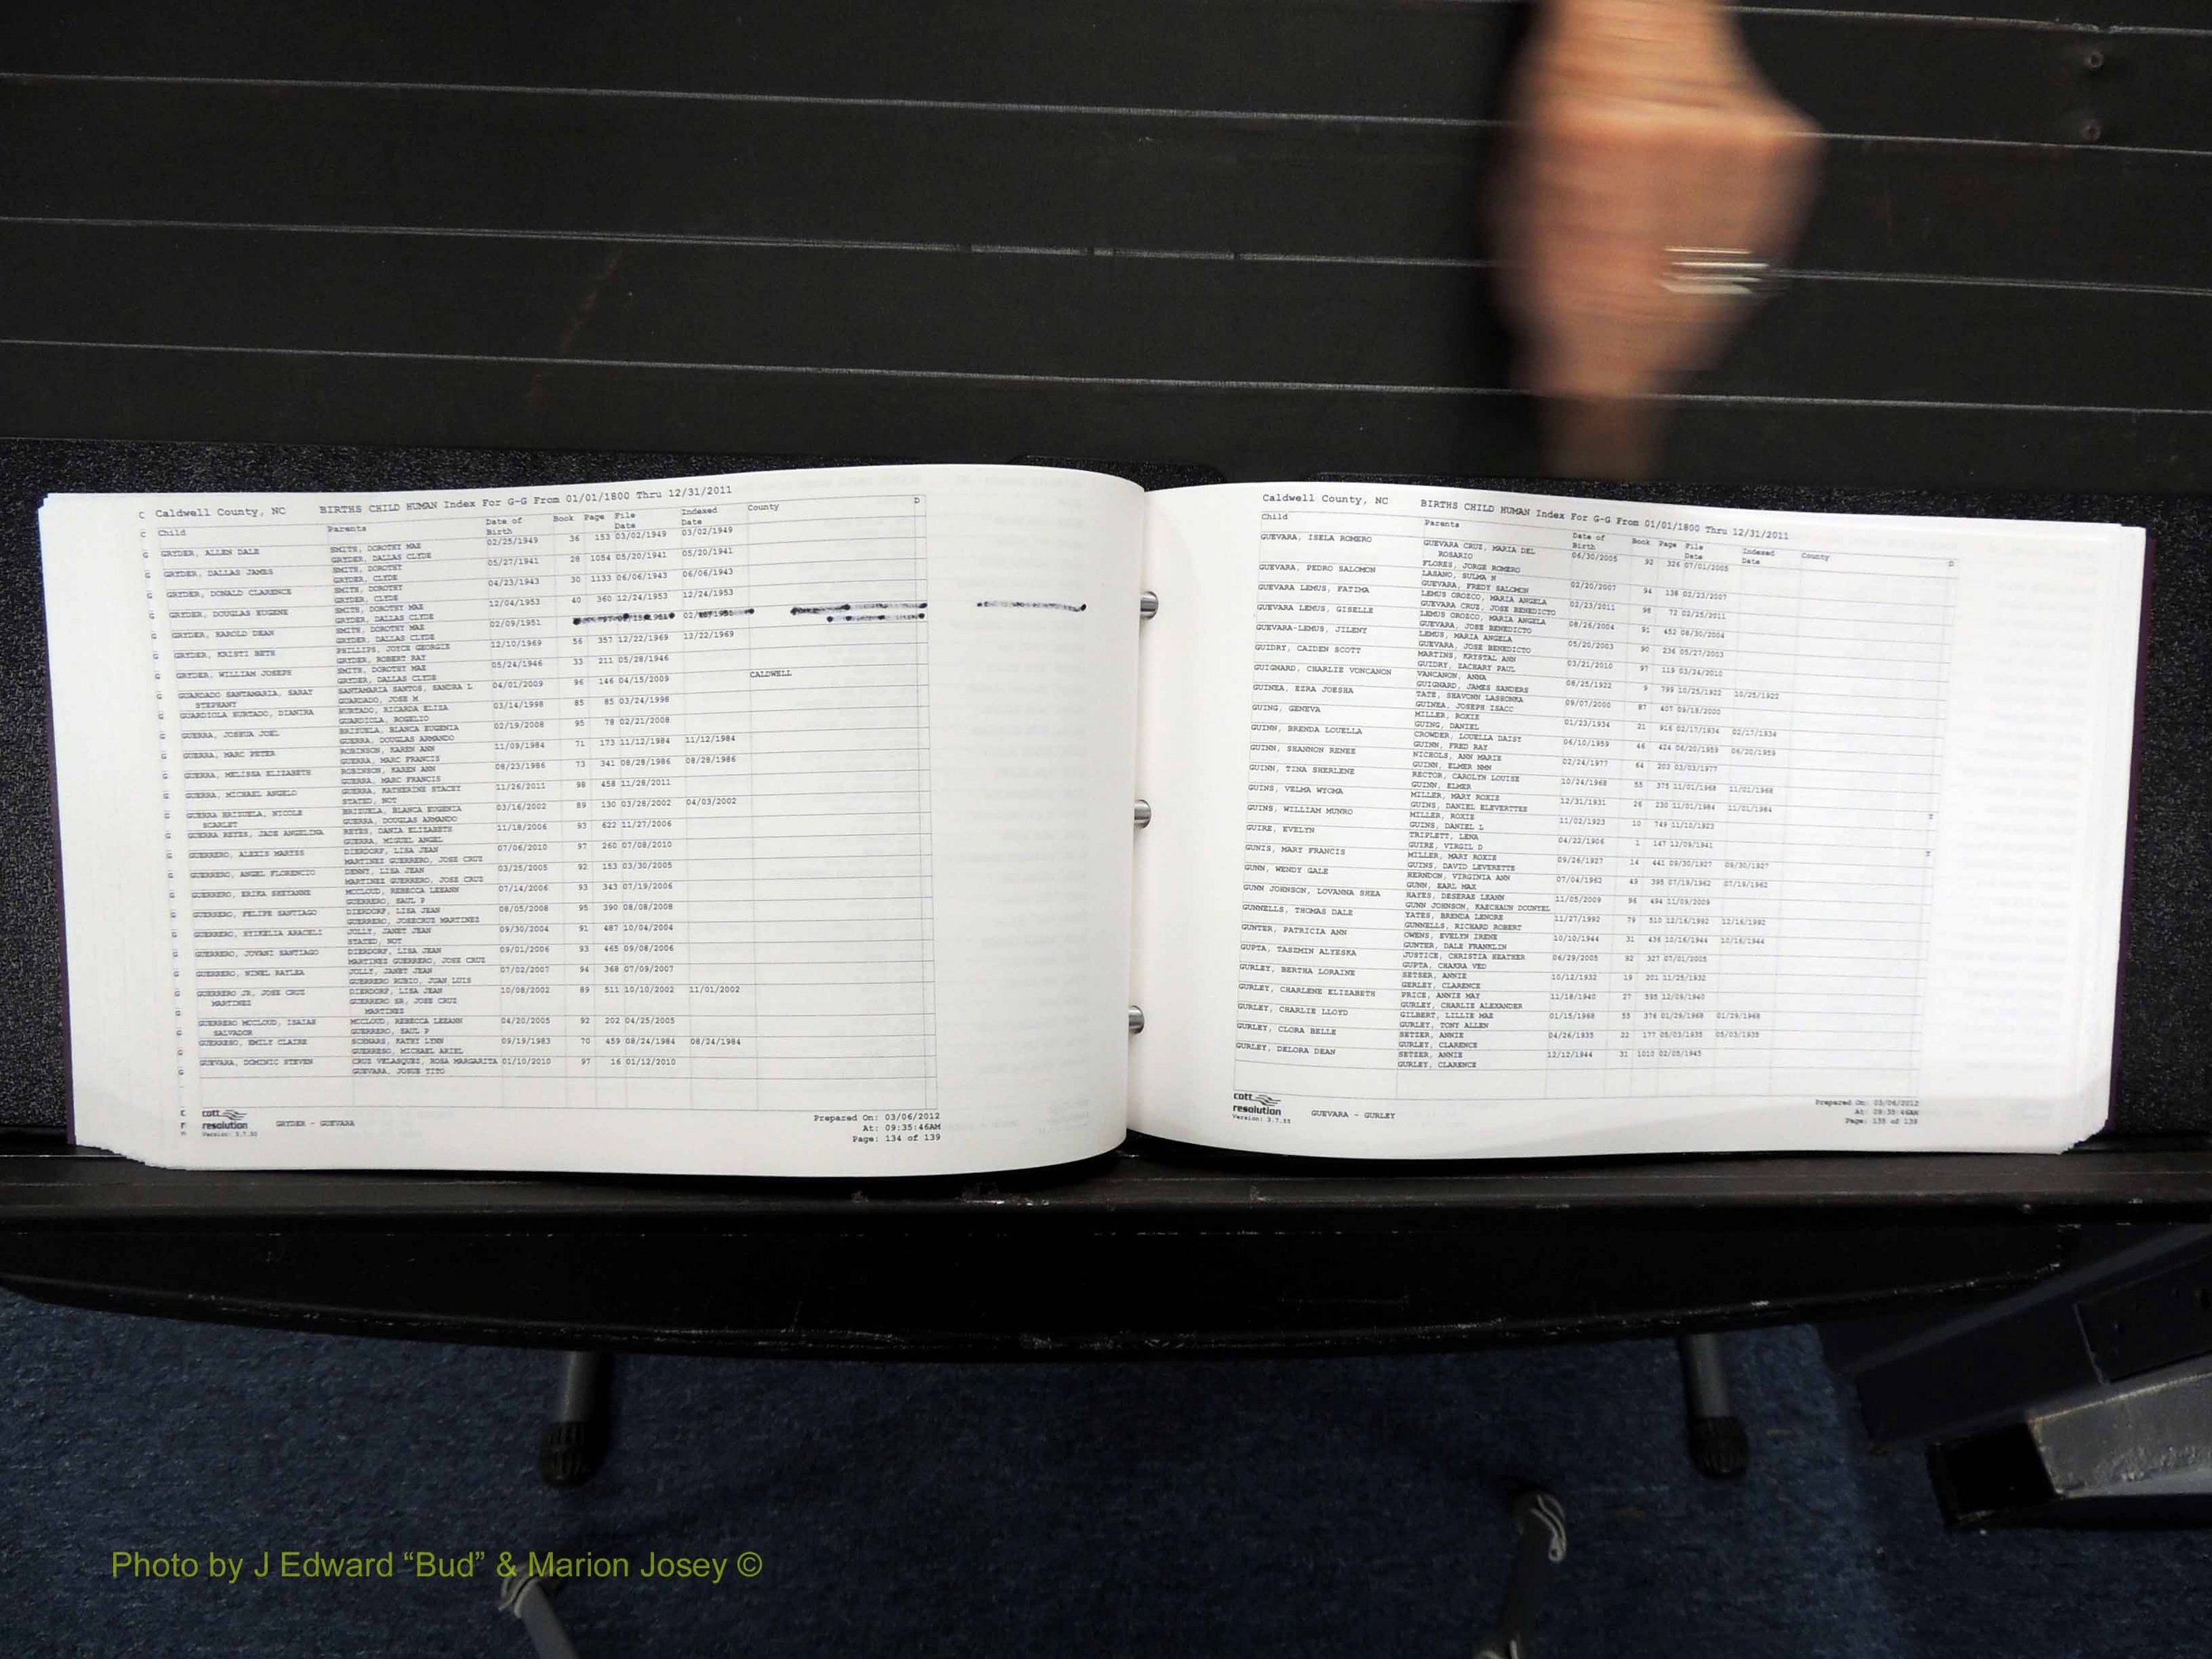 Caldwell County, NC BIRTHS CHILD HUMAN Index For G-G From 01/01/1800 Thru 12/31/2011
Child Parents Date of Birth Book Page File Date Indexed Date County D
GRYDER, ALLEN DALE SMITH, DOROTHY MAE 02/25/1949 36 153 03/02/1949 03/02/1949
GRYDER, DALLAS CLYDE
GRYDER, DALLAS JAMES SMITH, DOROTHY 05/27/1941 28 1054 05/20/1941 05/20/1941
GRYDER, CLYDE
GRYDER, DONALD CLARENCE SMITH, DOROTHY 04/23/1943 30 1133 06/06/1943 06/06/1943
GRYDER, CLYDE
GRYDER, DOUGLAS EUGENE SMITH, DOROTHY MAE 12/04/1953 40 360 12/24/1953 12/24/1953
GRYDER, DALLAS CLYDE
GRYDER, HAROLD DEAN SMITH, DOROTHY MAE 02/09/1951
GRYDER, DALLAS CLYDE
GRYDER, KRISTI BETH PHILLIPS, JOYCE GEORGIE 12/10/1969 56 357 12/22/1969 12/22/1969
GRYDER, ROBERT RAY
GRYDER, WILLIAM JOSEPH SMITH, DOROTHY MAE 05/24/1946 33 211 05/28/1946
GRYDER, DALLAS CLYDE
GUARDADO SANTAMARIA, SARAY STEPHANY SANTAMARIA SANTOS, SANDRA L 04/01/2009 96 146 04/15/2009 CALDWELL
GUARDADO, JOSE M
GUARDIOLA HURTADO, DIANIRA HURTADO, RICARDA ELIZA 03/14/1998 85 85 03/24/1998
GUARDIOLA, ROGELIO
GUERRA, JOSHUA JOEL BRIZUELA, BLANCA EUGENIA 02/19/2008 95 78 02/21/2008
GUERRA, DOUGLAS ARMANDO
GUERRA, MARC PETER ROBINSON, KAREN ANN 11/09/1984 71 173 11/12/1984 11/12/1984
GUERRA, MARC FRANCIS
GUERRA, MELISSA ELIZABETH ROBINSON, KAREN ANN 08/23/1986 73 341 08/28/1986 08/28/1986
GUERRA, MARC FRANCIS
GUERRA, MICHAEL ANGELO GUERRA, KATHERINE STACEY 11/26/2011 98 458 11/28/2011
STATED, NOT
GUERRA BRIZUELA, NICOLE SCARLET BRIZUELA, BLANCA EUGENIA 03/16/2002 89 130 03/28/2002 04/03/2002
GUERRA, DOUGLAS ARMANDO
GUERRA REYES, JADE ANGELINA REYES, DANIA ELIZABETH 11/18/2006 93 622 11/27/2006
GUERRA, MIGUEL ANGEL
GUERRERO, ALEXIS MARTES DIERDORF, LISA JEAN 07/06/2010 97 260 07/08/2010
MARTINEZ GUERRERO, JOSE CRUZ
GUERRERO, ANGEL FLORENCIO DENNY, LISA JEAN 03/25/2005 92 153 03/30/2005
MARTINEZ GUERRERO, JOSE CRUZ
GUERRERO, ERIKA SHEYANNE MCCLOUD, REBECCA LEEANN 07/14/2006 93 343 07/19/2006
GUERRERO, SAUL P
GUERRERO, FELIPE SANTIAGO DIERDORF, LISA JEAN 08/05/2008 95 390 08/08/2008
GUERRERO, JOSECRUZ MARTINEZ
GUERRERO, HYIKELIA ARACELI JOLLY, JANET JEAN 09/30/2004 91 487 10/04/2004
STATED, NOT
GUERRERO, JOVANI SANTIAGO DIERDORF, LISA JEAN 09/01/2006 93 465 09/08/2006
MARTINEZ GUERRERO, JOSE CRUZ
GUERRERO, NINEL BAYLEA JOLLY, JANET JEAN 07/02/2007 94 368 07/09/2007
GUERRERO RUBIO, JUAN LUIS
GUERRERO JR, JOSE CRUZ MARTINEZ DIERDORF, LISA JEAN 10/08/2002 89 511 10/10/2002 11/01/2002
GUERRERO SR, JOSE CRUZ MARTINEZ
GUERRERO MCCLOUD, ISAIAH SALVADOR MCCLOUD, REBECCA LEEANN 04/20/2005 92 202 04/25/2005
GUERRERO, SAUL P
GUERRESO, EMILY CLAIRE SCHNARS, KATHY LYNN 09/19/1983 70 459 08/24/1984 08/24/1984
GUERRESO, MICHAEL ARIEL
GUEVARA, DOMINIC STEVEN CRUZ VELASQUEZ, ROSA MARGARITA 01/10/2010 97 16 01/12/2010
GUEVARA, JOSUE TITO
cott resolution
Version: 3.7.55
GRYDER - GUEVARA
Prepared On: 03/06/2012
At: 09:35:46AM
Page: 134 of 139
Caldwell County, NC BIRTHS CHILD HUMAN Index For G-G From 01/01/1800 Thru 12/31/2011
Child Parents Date of Birth Book Page File Date Indexed Date County D
GUEVARA, ISELA ROMERO GUEVARA CRUZ, MARIA DEL ROSARIO 06/30/2005 92 326 07/01/2005
FLORES, JORGE ROMERO
GUEVARA, PEDRO SALOMON LASANO, SULMA N 02/20/2007 94 138 02/23/2007
GUEVARA, FREDY SALOMON
GUEVARA LEMUS, FATIMA LEMUS OROZCO, MARIA ANGELA 02/23/2011 98 72 02/25/2011
GUEVARA CRUZ, JOSE BENEDICTO
GUEVARA LEMUS, GISELLE LEMUS OROZCO, MARIA ANGELA 08/26/2004 91 452 08/30/2004
GUEVARA, JOSE BENEDICTO
GUEVARA-LEMUS, JILENY LEMUS, MARIA ANGELA 05/20/2003 90 236 05/27/2003
GUEVARA, JOSE BENEDICTO
GUIDRY, CAIDEN SCOTT MARTINS, KRYSTAL ANN 03/21/2010 97 119 03/24/2010
GUIDRY, ZACHARY PAUL
GUIGNARD, CHARLIE VONCANON VANCANON, ANNA 08/25/1922 9 799 10/25/1922 10/25/1922
GUIGNARD, JAMES SANDERS
GUINEA, EZRA JOESHA TATE, SHAVONN LASHONKA 09/07/2000 87 407 09/18/2000
GUINEA, JOSEPH ISACC
GUING, GENEVA MILLER, ROXIE 01/23/1934 21 916 02/17/1934 02/17/1934
GUING, DANIEL
GUINN, BRENDA LOUELLA CROWDER, LOUELLA DAISY 06/10/1959 46 424 06/20/1959 06/20/1959
GUINN, FRED RAY
GUINN, SHANNON RENEE NICHOLS, ANN MARIE 02/24/1977 64 203 03/03/1977
GUINN, ELMER NMN
GUINN, TINA SHERLENE RECTOR, CAROLYN LOUISE 10/24/1968 55 375 11/01/1968 11/01/1968
GUINN, ELMER
GUINS, VELMA WYOMA MILLER, MARY ROXIE 12/31/1931 26 230 11/01/1984 11/01/1984
GUINS, DANIEL ELEVERTTEE
GUINS, WILLIAM MUNRO MILLER, ROXIE 11/02/1923 10 749 11/10/1923
GUINS, DANIEL L
GUIRE, EVELYN TRIPLETT, LENA 04/22/1906 1 147 12/09/1941
GUIRE, VIRGIL D
GUNIS, MARY FRANCIS MILLER, MARY ROXIE 09/26/1927 14 441 09/30/1927 09/30/1927
GUINS, DAVID LEVERETTE
GUNN, WENDY GALE HERNDON, VIRGINIA ANN 07/04/1962 49 395 07/19/1962 07/19/1962
GUNN, EARL MAX
GUNN JOHNSON, LOVANNA SHEA HAYES, DESERAE LEANN 11/05/2009 96 494 11/09/2009
GUNN JOHNSON, KAECHAUN DOUNTEL
GUNNELLS, THOMAS DALE YATES, BRENDA LENORE 11/27/1992 79 510 12/16/1992 12/16/1992
GUNNELLS, RICHARD ROBERT
GUNTER, PATRICIA ANN OWENS, EVELYN IRENE 10/10/1944 31 436 10/16/1944 10/16/1944
GUNTER, DALE FRANKLIN
GUPTA, TASEMIN ALYESKA JUSTICE, CHRISTIA HEATHER 06/29/2005 92 327 07/01/2005
GUPTA, CHAKRA VED
GURLEY, BERTHA LORAINE SETSER, ANNIE 10/12/1932 19 201 11/25/1932
GERLEY, CLARENCE
GURLEY, CHARLENE ELIZABETH PRICE, ANNIE MAY 11/18/1940 27 595 12/09/1940
GURLEY, CHARLIE ALEXANDER
GURLEY, CHARLIE LLOYD GILBERT, LILLIE MAE 01/15/1968 55 376 01/29/1968 01/29/1968
GURLEY, TONY ALLEN
GURLEY, CLORA BELLE SETZER, ANNIE 04/26/1935 22 177 05/03/1935 05/03/1935
GURLEY, CLARENCE
GURLEY, DELORA DEAN SETZER, ANNIE 12/12/1944 31 1010 02/05/1945
GURLEY, CLARENCE
cott resolution
Version: 3.7.55
GUEVARA - GURLEY
Prepared On: 03/06/2012
At: 09:35:46AM
Page: 135 of 139
Photo by J Edward “Bud” & Marion Josey ©